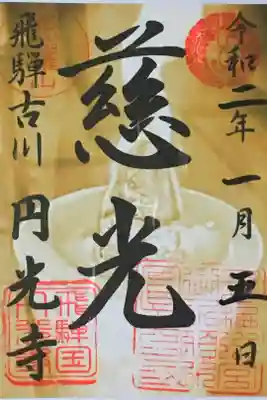 令和二年一月五日
慈光
飛騨古川 円光寺